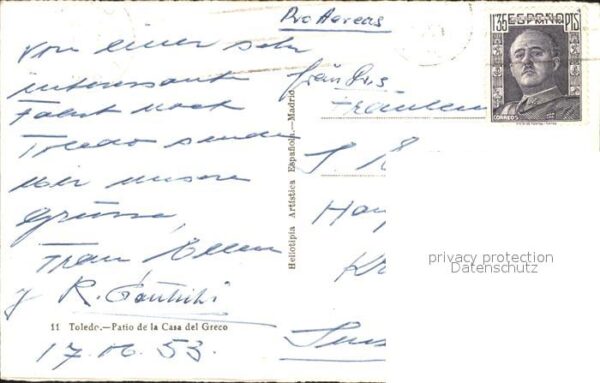 Por Aereas
Von einer sehr
interessanten
Fahrt nach
Toledo senden
wir unsere
Grüsse,
Frau Ellen
y R.
11 Toledo.—Patio de la Casa del Greco
17.06.53.
Heliotipia Artística Española.—Madrid
1'35 ESPAÑA PTS
CORREOS
Fräulein
S.
privacy protection
Datenschutz